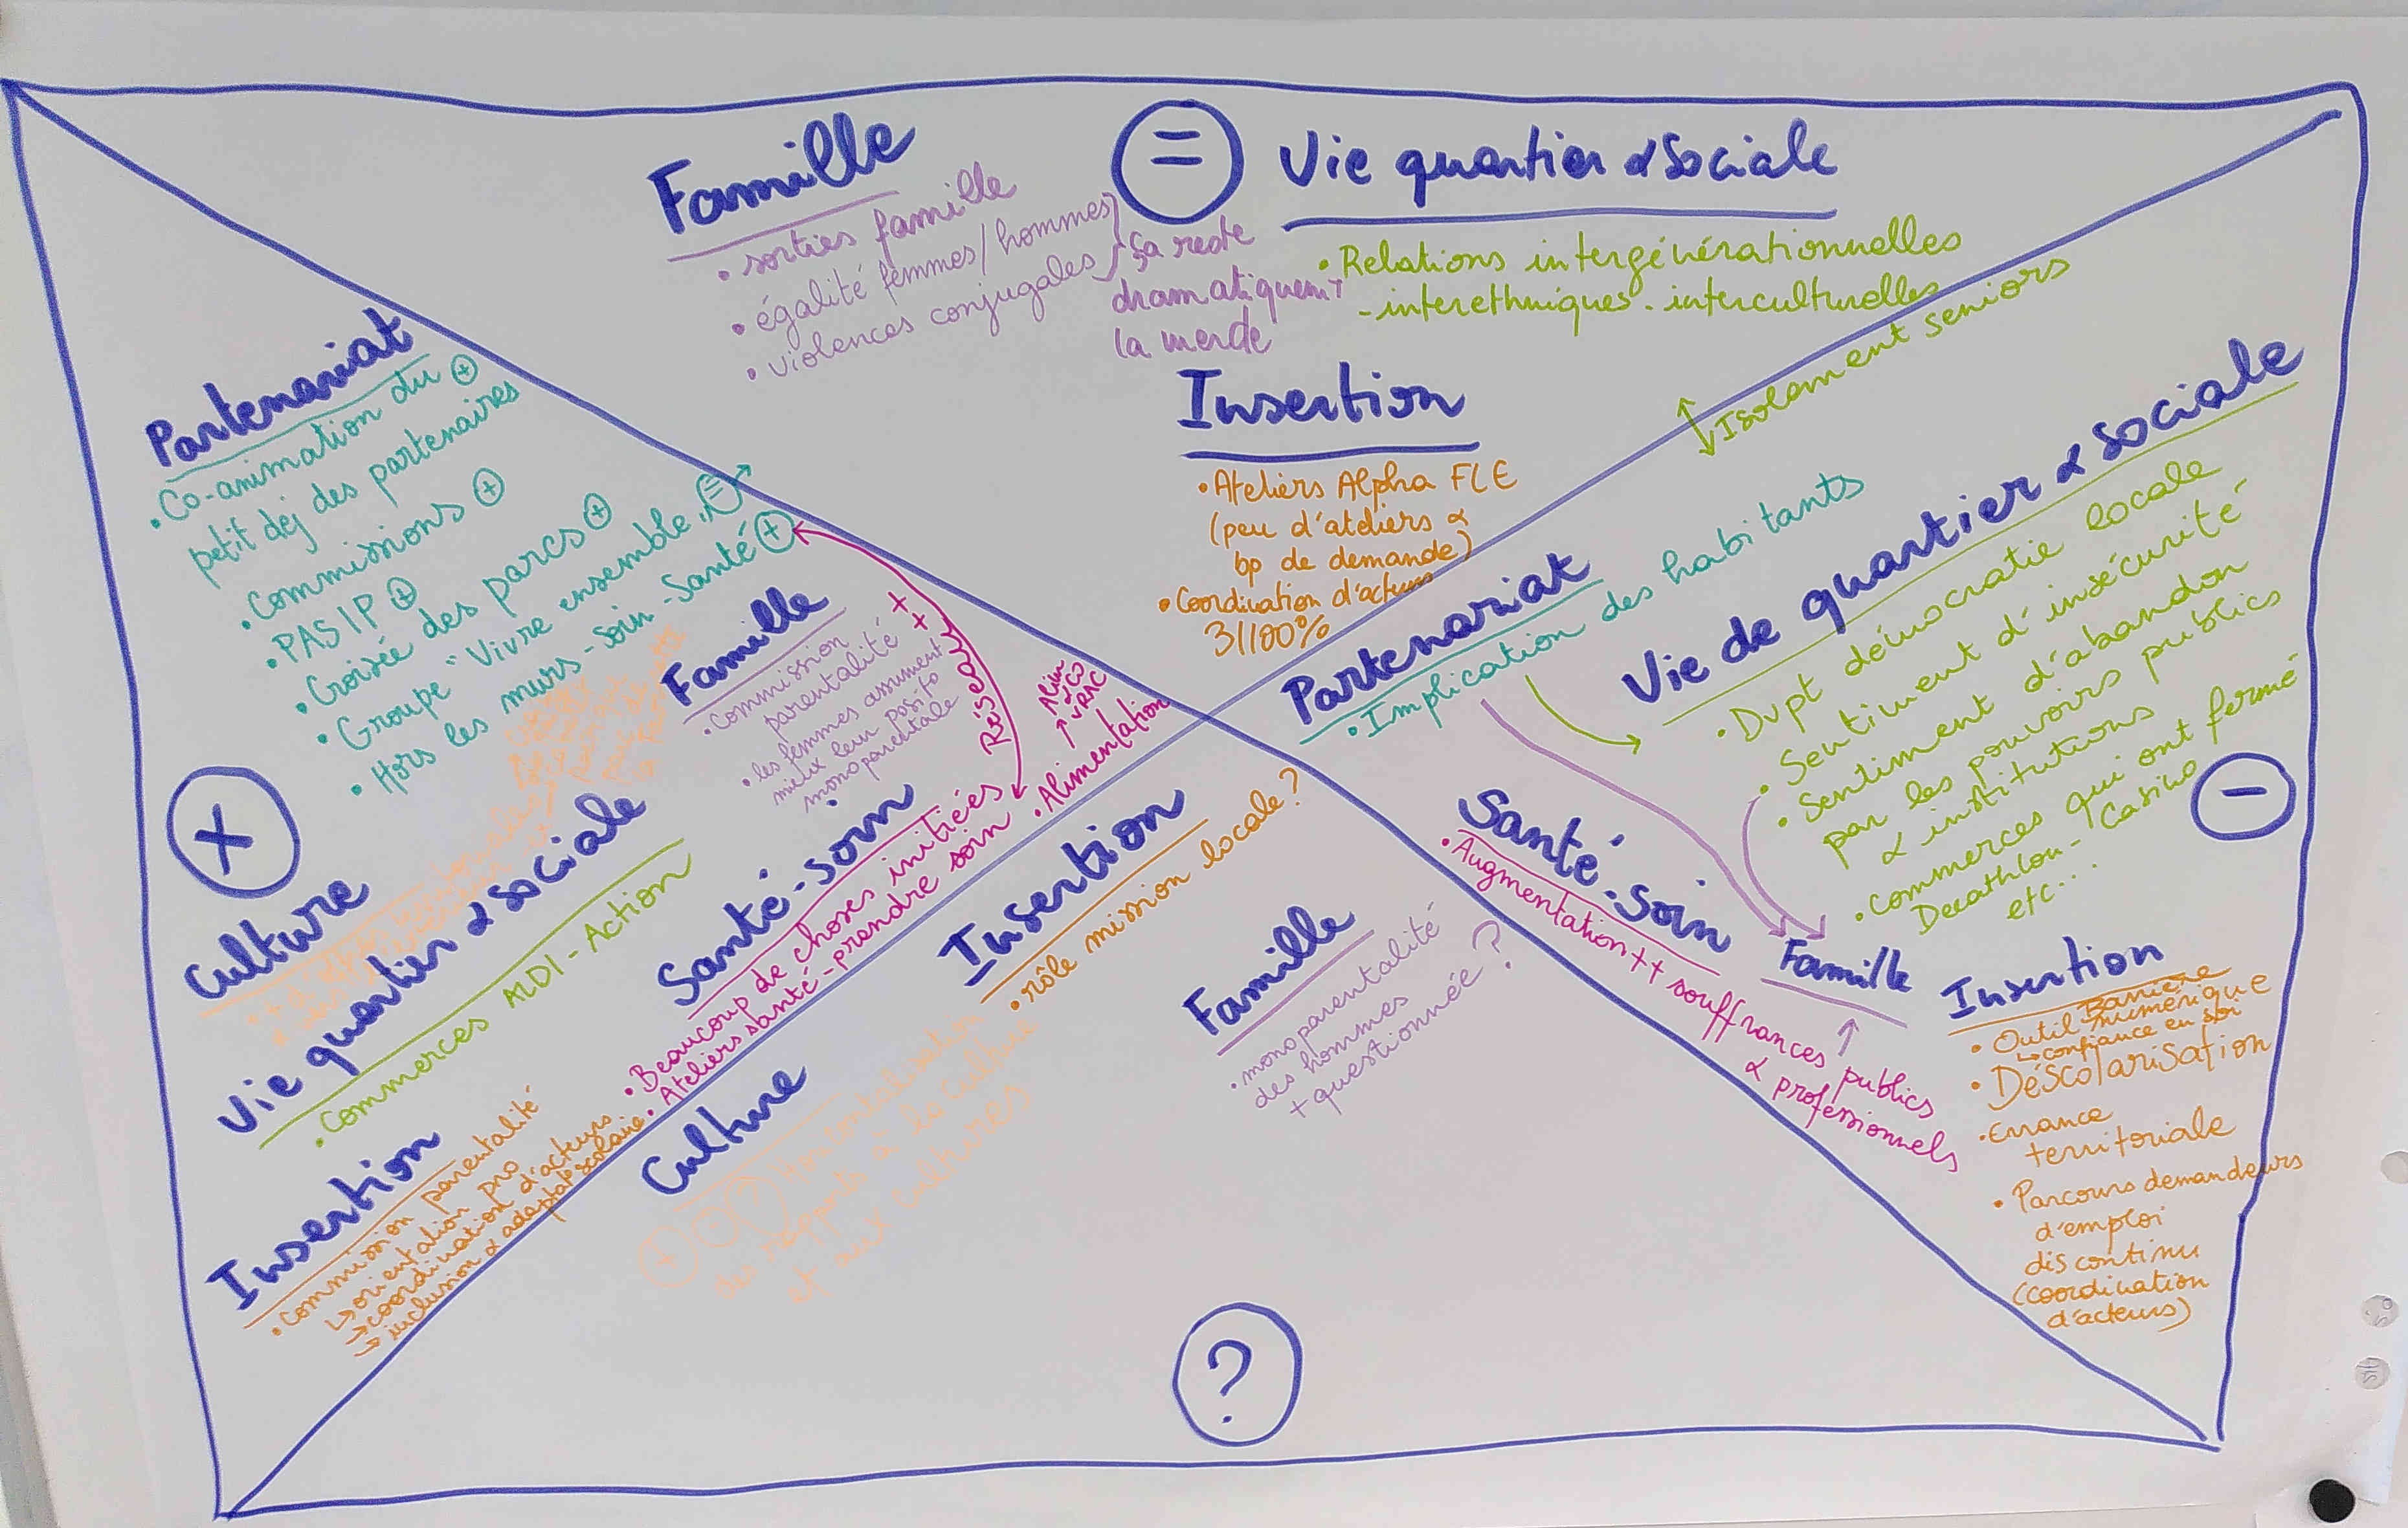 Famille
• sorties famille
• égalité femmes/hommes
• violences conjugales
ça reste
dramatiquemt
la merde
=
Vie quartier & sociale
• Relations intergénérationnelles
- interethniques - interculturelles
Insertion
• Ateliers Alpha FLE
(peu d'ateliers &
bp de demande)
• Coordination d'acteurs
Isolement seniors
Partenariat
• Co-animation du +
petit déj des partenaires
• Commissions +
• PASIP +
• Croisée des parcs +
• Groupe "Vivre ensemble" =
• Hors les murs - soin - santé +
Famille
• Commission
parentalité
• les femmes assument
mieux leur posit°
monoparentale
+
+
Réseau
+
Culture
Vie quartier & sociale
• Commerces ALDI - Action
Santé - soin
• Beaucoup de choses initiées
• Ateliers santé - prendre soin
• Alimentation
↑ VRAC
Insertion
• Commission parentalité
↳ orientation pro
→ coordination d'acteurs
→ inclusion & adaptat° scolaire
Partenariat
• Implication des habitants
Vie de quartier & sociale
• Dvpt démocratie locale
• Sentiment d'insécurité
• Sentiment d'abandon
par les pouvoirs publics
& institutions
• Commerces qui ont fermé
Decathlon - Casino
etc...
-
Santé - soin
• Augmentation ++ souffrances publics
& professionnels
Famille
Insertion
Barrière
• Outil numérique
↳ confiance en soi
• Déscolarisation
• Errance
territoriale
• Parcours demandeurs
d'emploi
discontinu
(coordination
d'acteurs)
Insertion
• rôle mission locale ?
Famille
• monoparentalité
des hommes
+ questionnée ?
Culture
+ - ?
du rapport à la culture
et aux cultures
?